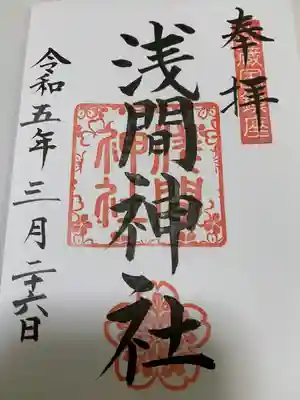 奉拝
浅間神社
令和五年三月二十六日